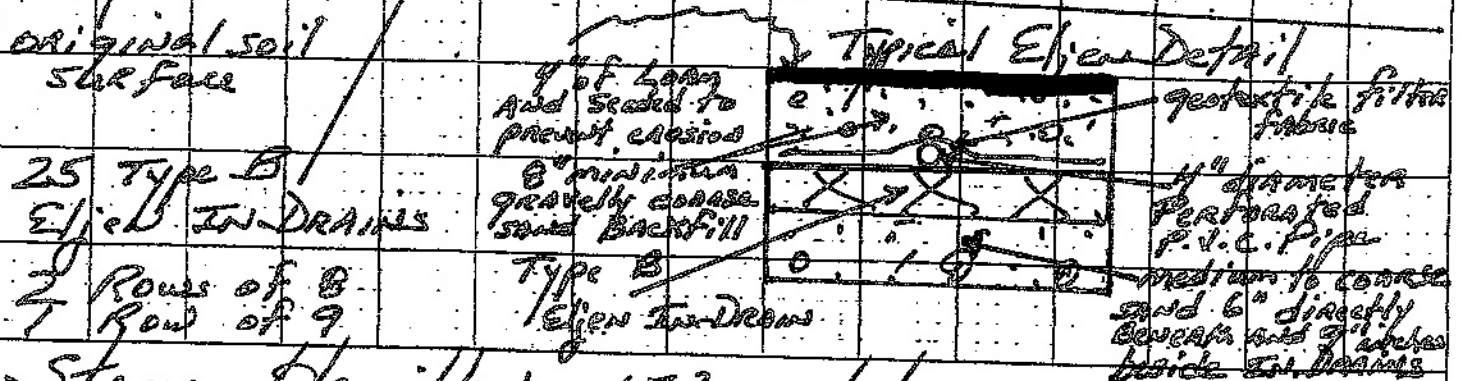 original soil
surface
25 Type B
Eljen IN-DRAINS
2 Rows of 8
1 Row of 9
Typical Eljen Detail
4" of Loam
And Seeded to
prevent erosion
8" minimum
gravelly coarse
sand Backfill
Type B
Eljen IN-DRAIN
geotextile filter
fabric
4" diameter
Perforated
P.V.C. Pipe
medium to coarse
sand 6" directly
beneath and 9" inches
beside IN-DRAINS